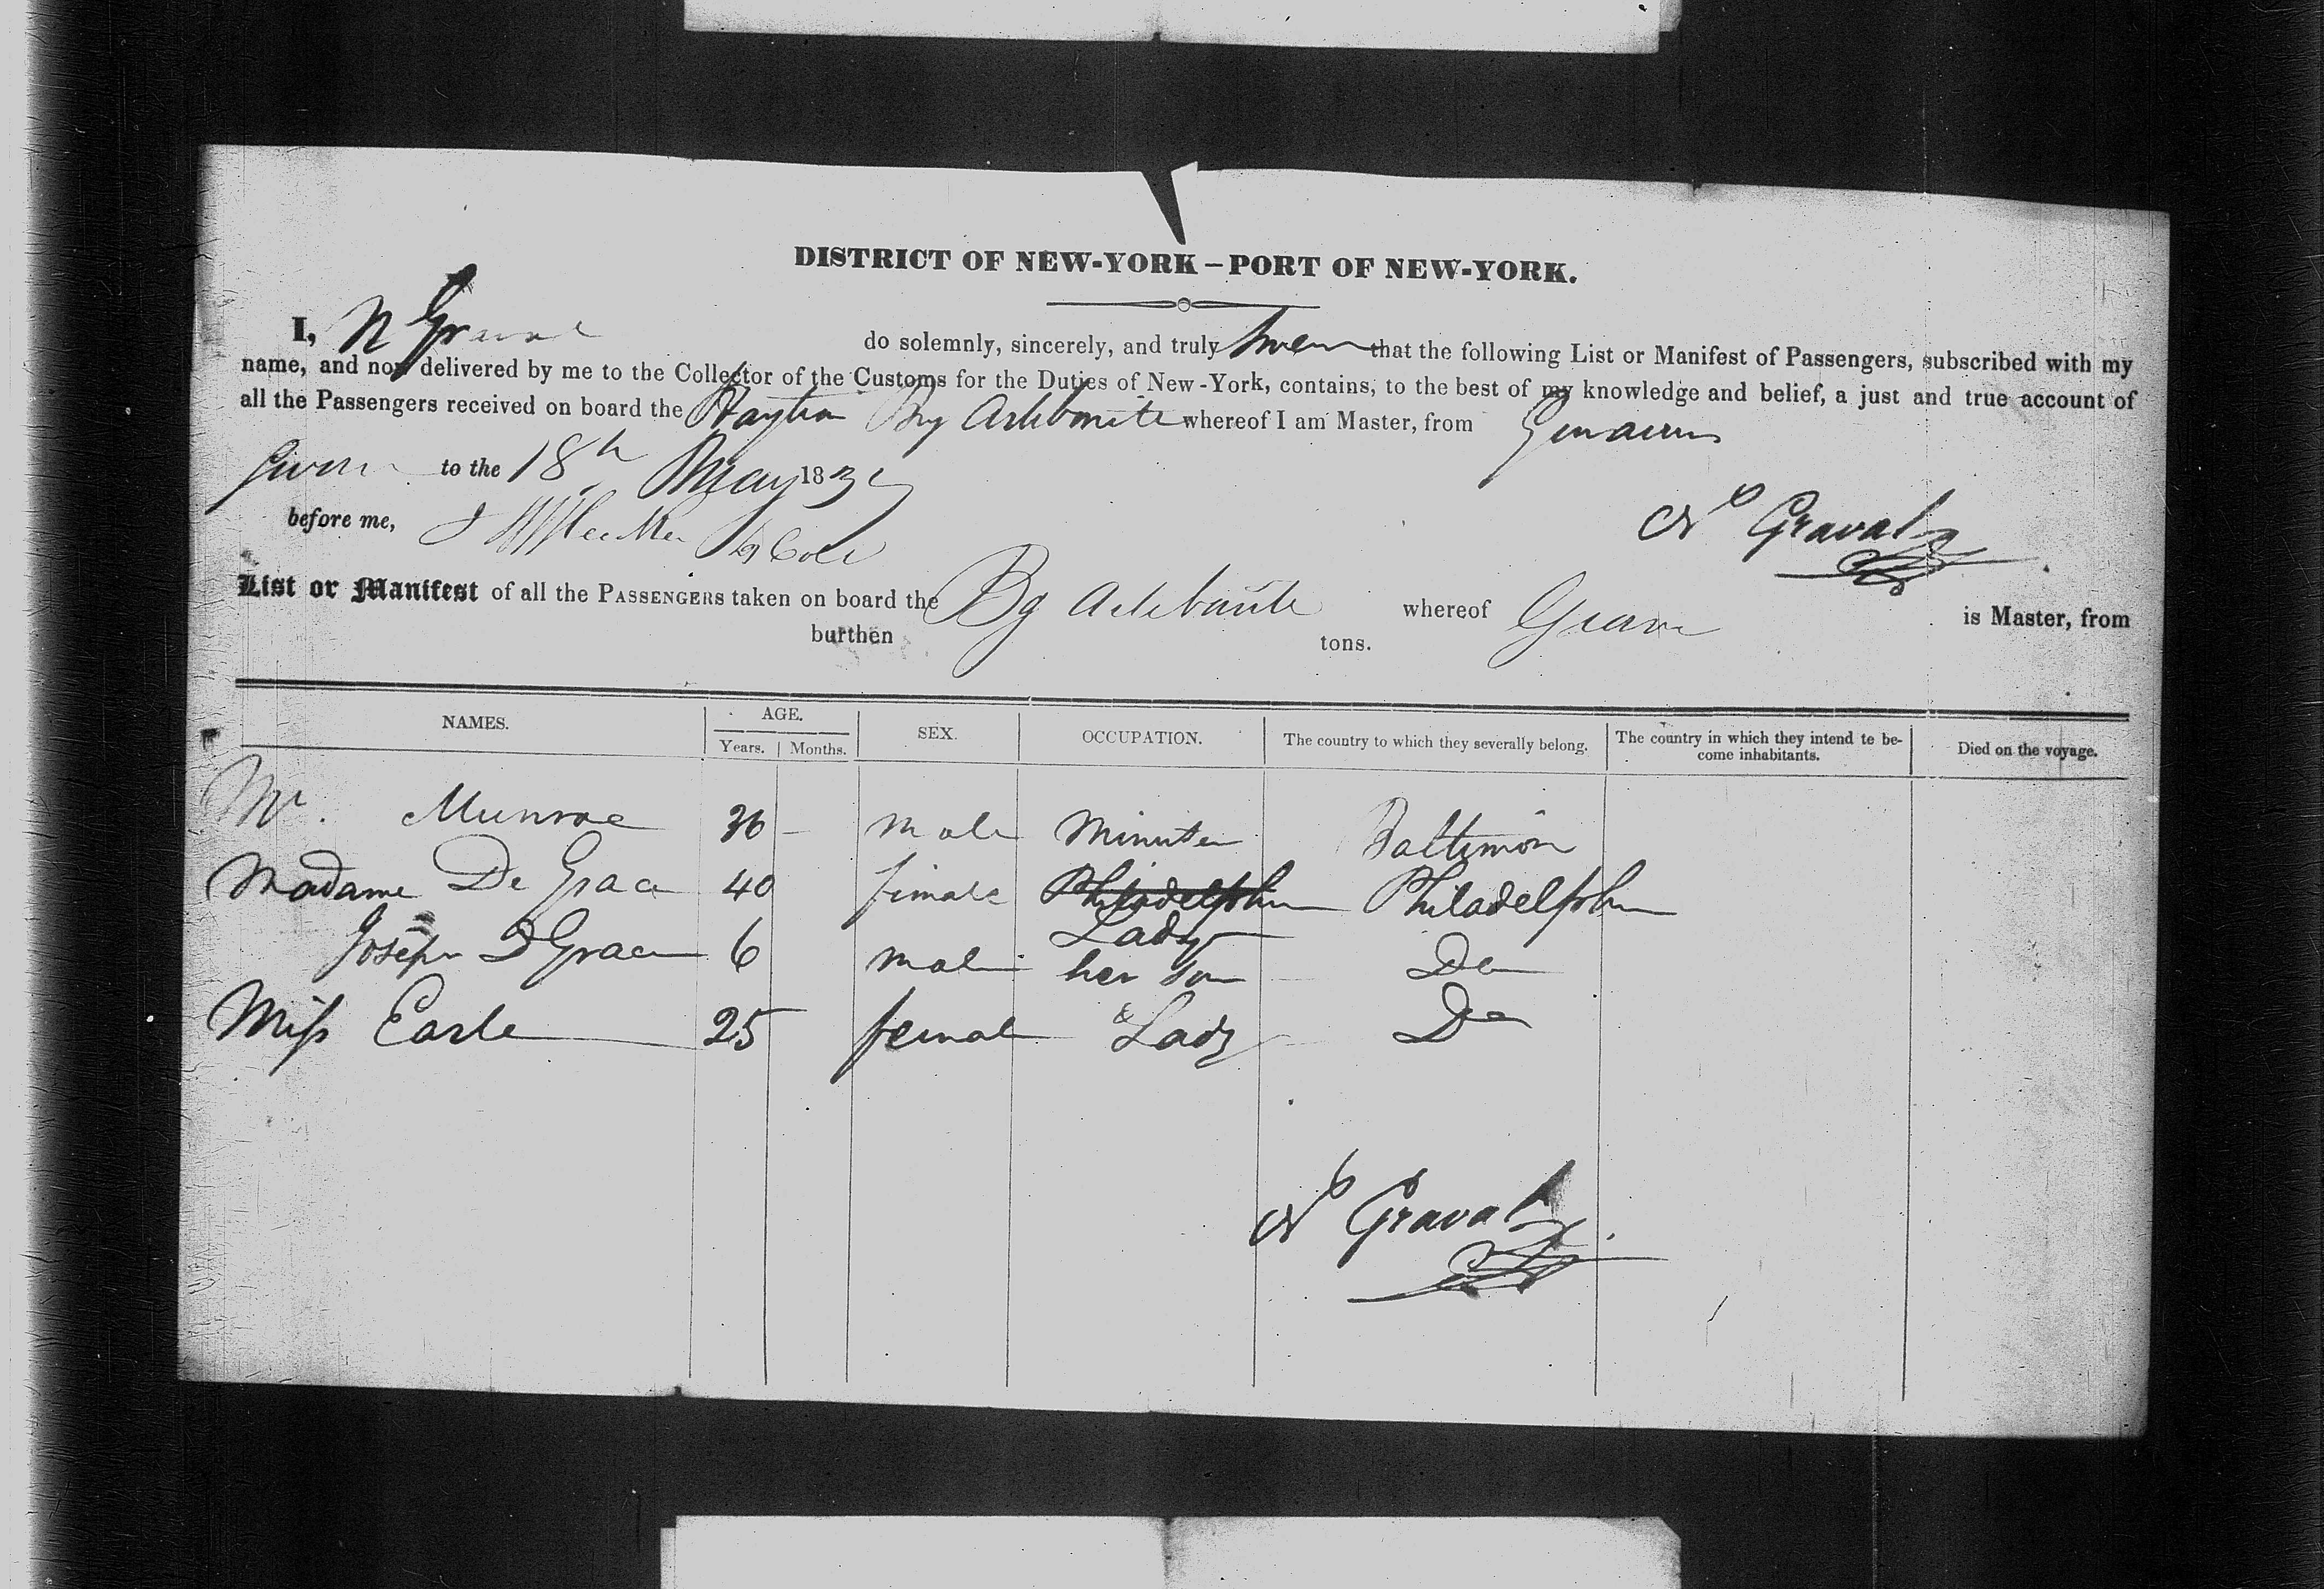 DISTRICT OF NEW-YORK – PORT OF NEW-YORK.
I, N Graval do solemnly, sincerely, and truly swear that the following List or Manifest of Passengers, subscribed with my
name, and now delivered by me to the Collector of the Customs for the Duties of New-York, contains, to the best of my knowledge and belief, a just and true account of
all the Passengers received on board the Haytian Brig Artibonite whereof I am Master, from
Sworn to the 18th May 183
before me,
No Graval
List or Manifest of all the PASSENGERS taken on board the Bg Artibonite whereof Graval is Master, from
burthen tons.
NAMES. AGE. SEX. OCCUPATION. The country to which they severally belong. The country in which they intend te become inhabitants. Died on the voyage.
Years. Months.
Mr. Munroe 36 – male Minister Baltimore
Madame De Grace 40 female Philadelphia Philadelphia
Lady
Joseph D Grace 6 male her son Do
Miss Earle 25 female Lady Do
No Graval